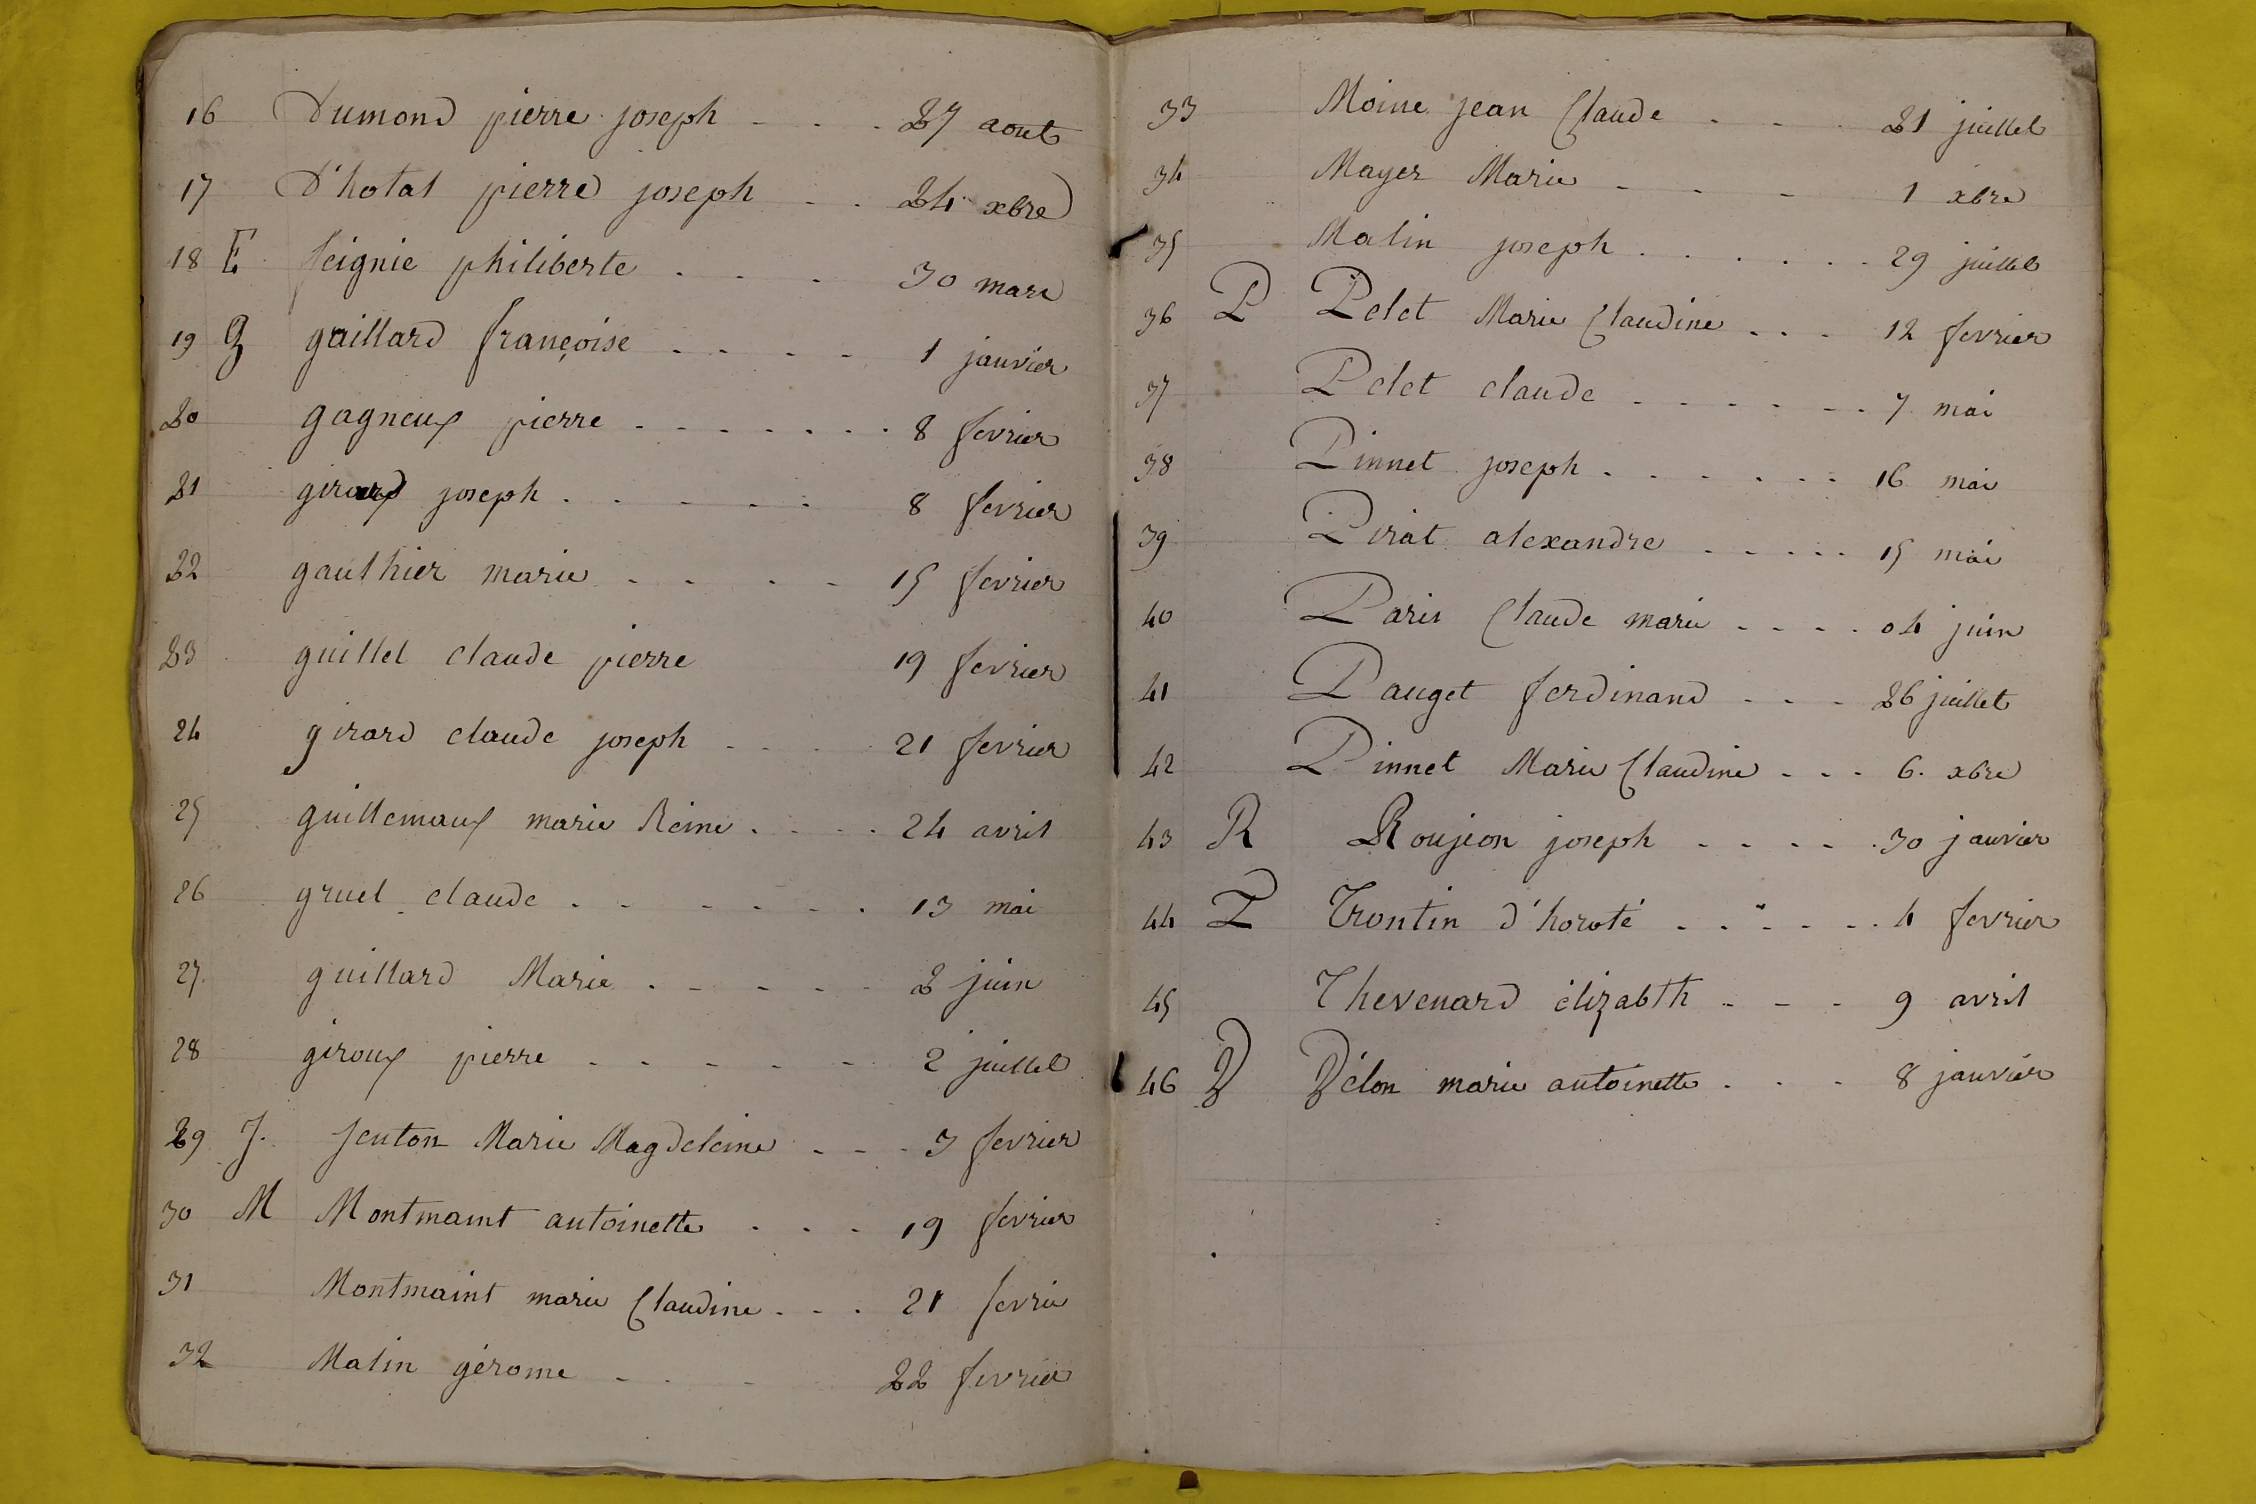 16 Dumond pierre joseph - - . 27 aout
17 D'hotal pierre joseph . . 24 xbre
18 E feignie philiberte . . . 30 mars
19 g gaillard françoise . . . . 1 janvier
20 gagneux pierre . . . . . . . 8 fevrier
21 girard joseph . . . . . 8 fevrier
22 gauthier marie . . . . 15 fevrier
23 guillet claude pierre 19 fevrier
24 girard claude joseph . . . 21 fevrier
25 guillemaux marie Reine . . . . 24 avril
26 gruel claude . . . . . . . 13 mai
27. guillard Marie . . . . . 2 juin
28 giroux pierre . . . . . 2 juillet
29 J. Jeuton Marie Magdeleine . . . 3 fevrier
30 M Montmaint antoinette . . . 19 fevrier
31 Montmaint marie Claudine . . . 21 fevrie
32 Malin gérome . . . 22 fevrier
33 Moine jean Claude . . . 21 juillet
34 Mayer Marie . . . 1 xbre
35 Malin joseph . . . . . . . 29 juillet
36 P Pelet Marie Claudine . . . 12 fevrier
37 Pelet claude . . . . . . . 7 mai
38 Pinnet joseph . . . . . . . 16 mai
39 Pirat alexandre . . . . . 15 mai
40 Paris Claude marie . . . . 04 juin
41 Pauget ferdinand . . . 26 juillet
42 Pinnet Marie Claudine . . . 6. xbre
43 R Roujeon joseph . . . . . 30 janvier
44 T Trontin d'horoté . . . . . . 4 fevrier
45 Thevenard élizabth . . . 9 avril
46 V Vélon marie antoinette . . . 8 janvier